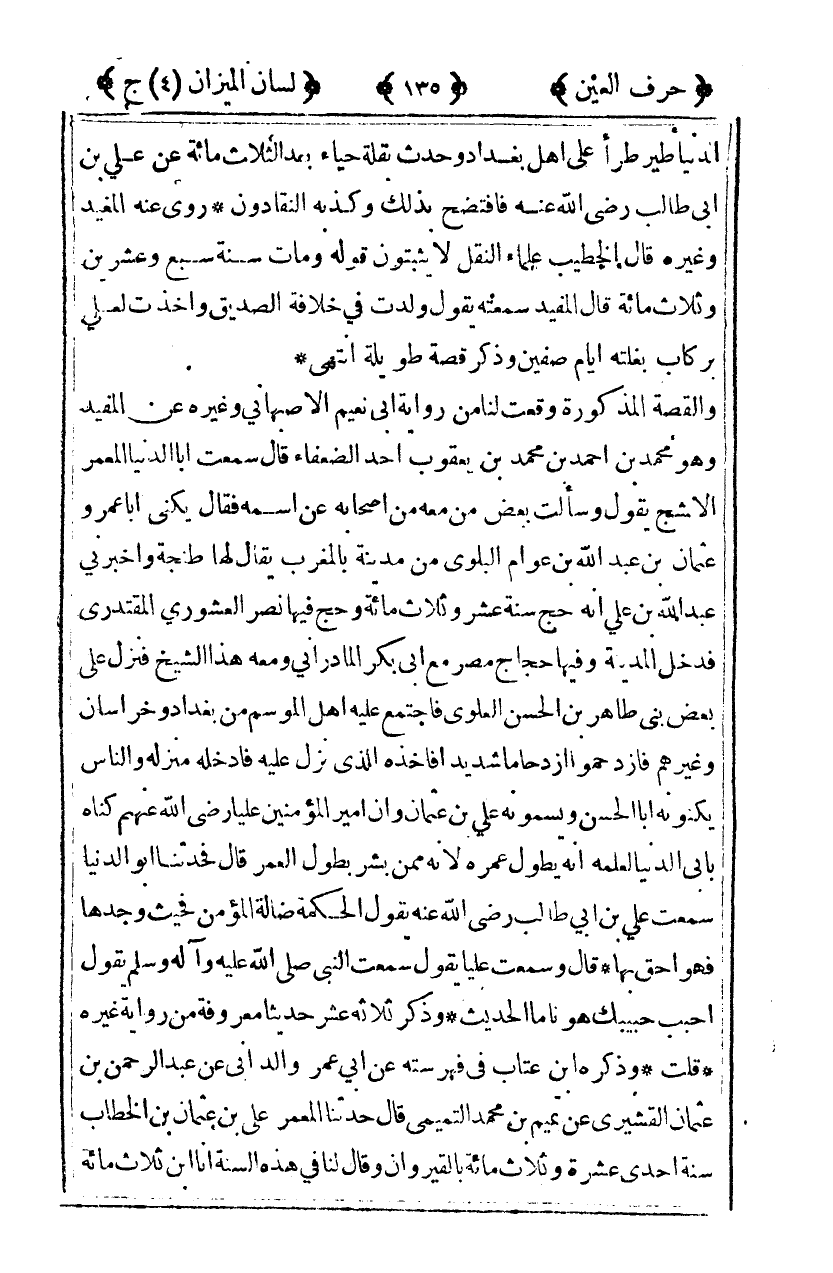 ﴿ حرف العين ﴾ ﴿ ١٣٥ ﴾ ﴿ لسان الميزان (٤) ج ﴾
الدنيا طير طرأ على اهل بغداد وحدث بقلة حياء بعد الثلاث مائة عن علي بن
ابى طالب رضى الله عنه فافتضح بذلك وكذبه النقادون * روى عنه المفيد
وغيره قال الخطيب علماء النقل لا يثبتون قوله ومات سنة سبع وعشرين
وثلاث مائة قال المفيد سمعته يقول ولدت في خلافة الصديق واخذت لعلي
بركاب بغلته ايام صفين وذكر قصة طويلة انتهى *
والقصة المذكورة وقعت لنا من رواية ابى نعيم الاصبهاني وغيره عن المفيد
وهو محمد بن احمد بن محمد بن يعقوب احد الضعفاء قال سمعت ابا الدنيا المعمر
الاشج يقول وسألت بعض من معه من اصحابه عن اسمه فقال يكنى ابا عمرو
عثمان بن عبد الله بن عوام البلوى من مدينة بالمغرب يقال لها طنجة واخبرني
عبد الله بن علي انه حج سنة عشر وثلاث مائة وحج فيها نصر العشوري المقتدرى
فدخل المدينة وفيها حجاج مصر مع ابى بكر المادراني ومعه هذا الشيخ فنزل على
بعض بنى طاهر بن الحسن العلوى فاجتمع عليه اهل الموسم من بغداد وخراسان
وغيرهم فازدحموا ازدحاما شديدا فاخذه الذى نزل عليه فادخله منزله والناس
يكنونه ابا الحسن ويسمونه علي بن عثمان وان امير المؤمنين عليا رضى الله عنهم كناه
بابى الدنيا لعلمه انه يطول عمره لانه ممن بشر بطول العمر قال فحدثنا ابو الدنيا
سمعت علي بن ابي طالب رضى الله عنه يقول الحكمة ضالة المؤمن فحيث وجدها
فهو احق بها * قال وسمعت عليا يقول سمعت النبى صلى الله عليه وآله وسلم يقول
احبب حبيبك هو ناما الحديث * وذكر ثلاثه عشر حديثا معروفة من رواية غيره
* قلت * وذكره ابن عتاب فى فهرسته عن ابي عمر والدانى عن عبد الرحمن بن
عثمان القشيرى عن تميم بن محمد التميمى قال حدثنا المعمر على بن عثمان بن الخطاب
سنة احدى عشرة وثلاث مائة بالقيروان وقال لنا في هذه السنة انا ابن ثلاث مائة